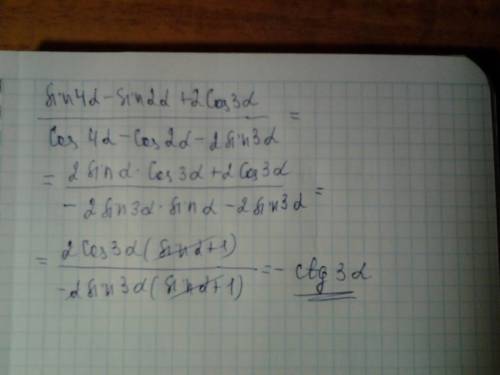 sin4α - sin2α + 2Cos3α =
Cos4α - Cos2α - 2sin3α
= 2sinα · Cos3α + 2Cos3α =
- 2sin3α · sinα - 2sin3α
= 2Cos3α (sinα + 1) = - ctg3α
-2sin3α (sinα + 1)